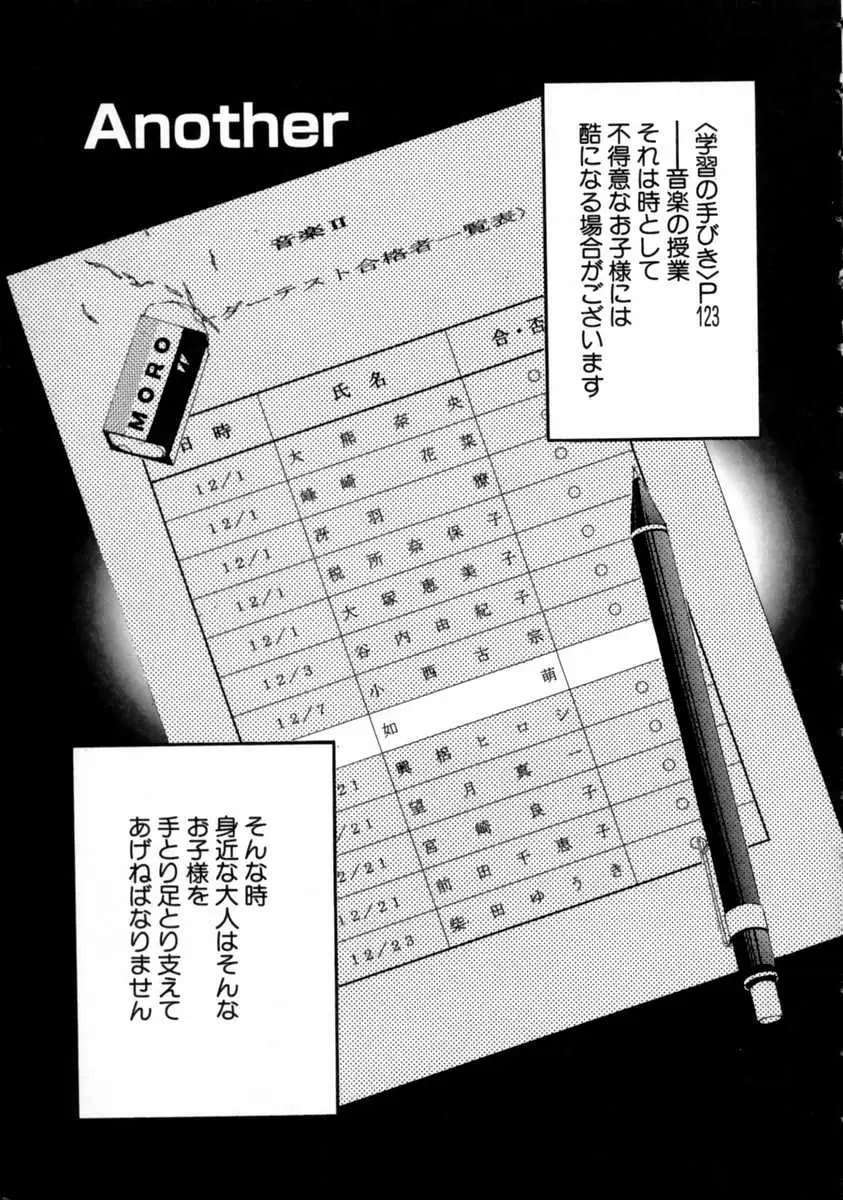 Another
〈学習の手びき〉P123
――音楽の授業
それは時として
不得意なお子様には
酷になる場合がございます
音楽Ⅱ
ーダーテスト合格者一覧表〉
MORO
日時 氏名 合・否
12/1 大熊奈央 ○
12/1 峰崎花菜 ○
12/1 冴羽獠 ○
12/1 税所奈保子 ○
12/1 大塚恵美子 ○
12/3 谷内由紀子 ○
12/7 小西古宗 ○
如萌
21 奥格ヒロシ ○
/21 望月真一 ○
2/21 宮崎良子 ○
12/21 前田千恵子 ○
12/23 柴田ゆうき
そんな時
身近な大人はそんな
お子様を
手とり足とり支えて
あげねばなりません